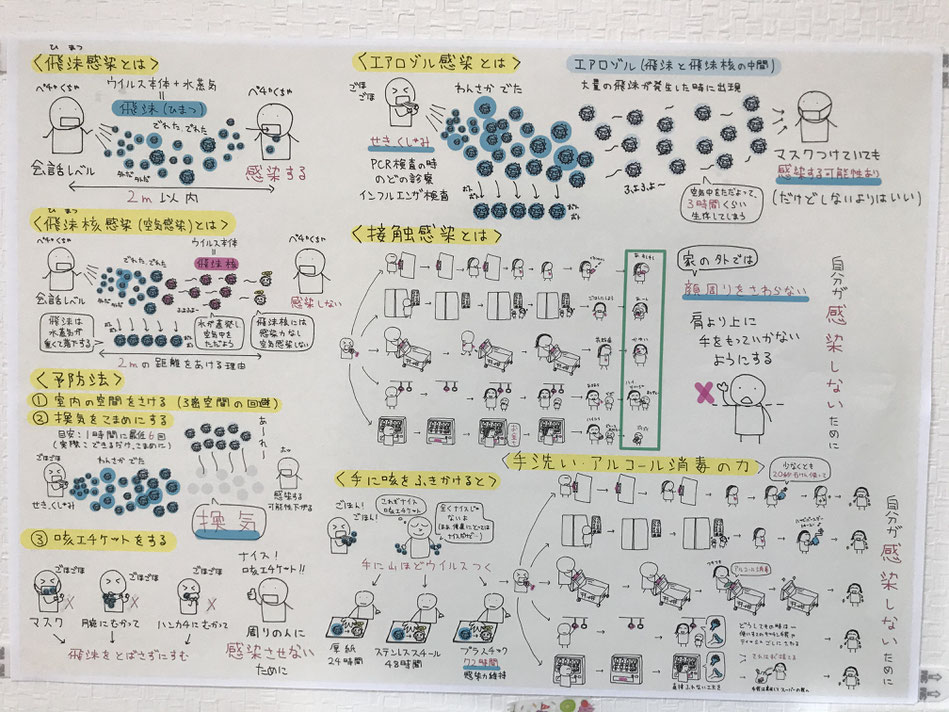 ひまつ
〈飛沫感染とは〉
ウイルス本体+水蒸気
=
ペチャクチャ
飛沫(ひまつ)
でれた でれた
ペチャクチャ
会話レベル
感染する
2m以内
ひまつ
〈飛沫核感染(空気感染)とは〉
ペチャクチャ
ウイルス本体
=
飛沫核
でれた でれた
ペチャクチャ
会話レベル
感染しない
飛沫は
水蒸気が
重くて落下する
水が蒸発し
空気中を
ただよう
飛沫核には
感染力なし
空気感染しない
2mの距離をあける理由
〈予防法〉
① 室内の空間をさける (3密空間の回避)
② 換気をこまめにする
目安:1時間に最低6回
(実際:できるだけこまめに)
ごほごほ
わんさかでた
せき、くしゃみ
あーれー
換気
感染する
可能性下がる
③ 咳エチケットをする
ごほごほ
ごほごほ
ごほごほ
ナイス!
咳エチケット!!
マスク
肘にむかって
ハンカチにむかって
周りの人に
飛沫をとばさずにすむ
感染させない
ために
〈エアロゾル感染とは〉
ごほごほ
わんさかでた
せき、くしゃみ
PCR検査の時
のどの診察
インフルエンザ検査
エアロゾル(飛沫と飛沫核の中間)
大量の飛沫が発生した時に出現
ふよふよ〜
空気中をただよって、
3時間くらい
生存してしまう
マスクつけていても
感染する可能性あり
(だけどしないよりはいい)
〈接触感染とは〉
家の外では
顔周りをさわらない
肩より上に
手をもっていかない
ようにする
自分が感染しないために
〈手に咳をふきかけると〉
ごほん!
ごほん!
これぞナイス
咳エチケット
手に山ほどウイルスつく
厚紙
24時間
ステンレススチール
48時間
プラスチック
72時間
感染力維持
〈手洗い・アルコール消毒の力〉
少なくとも
アルコール消毒
自分が感染しないために